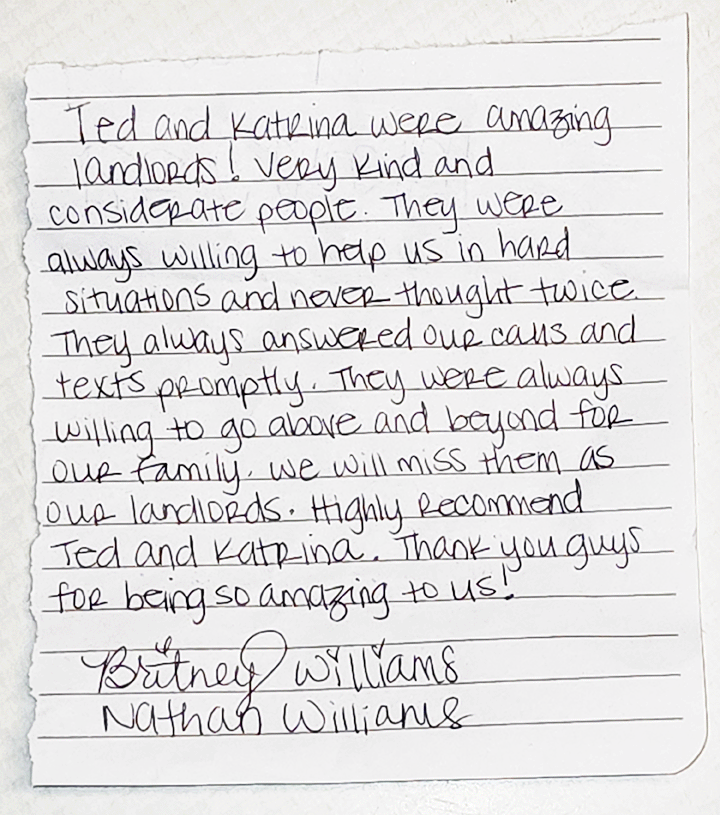 Ted and Katrina were amazing
landlords! Very kind and
considerate people. They were
always willing to help us in hard
situations and never thought twice.
They always answered our calls and
texts promptly. They were always
willing to go above and beyond for
our family. We will miss them as
our landlords. Highly Recommend
Ted and Katrina. Thank you guys
for being so amazing to us!
Britney Williams
Nathan Williams